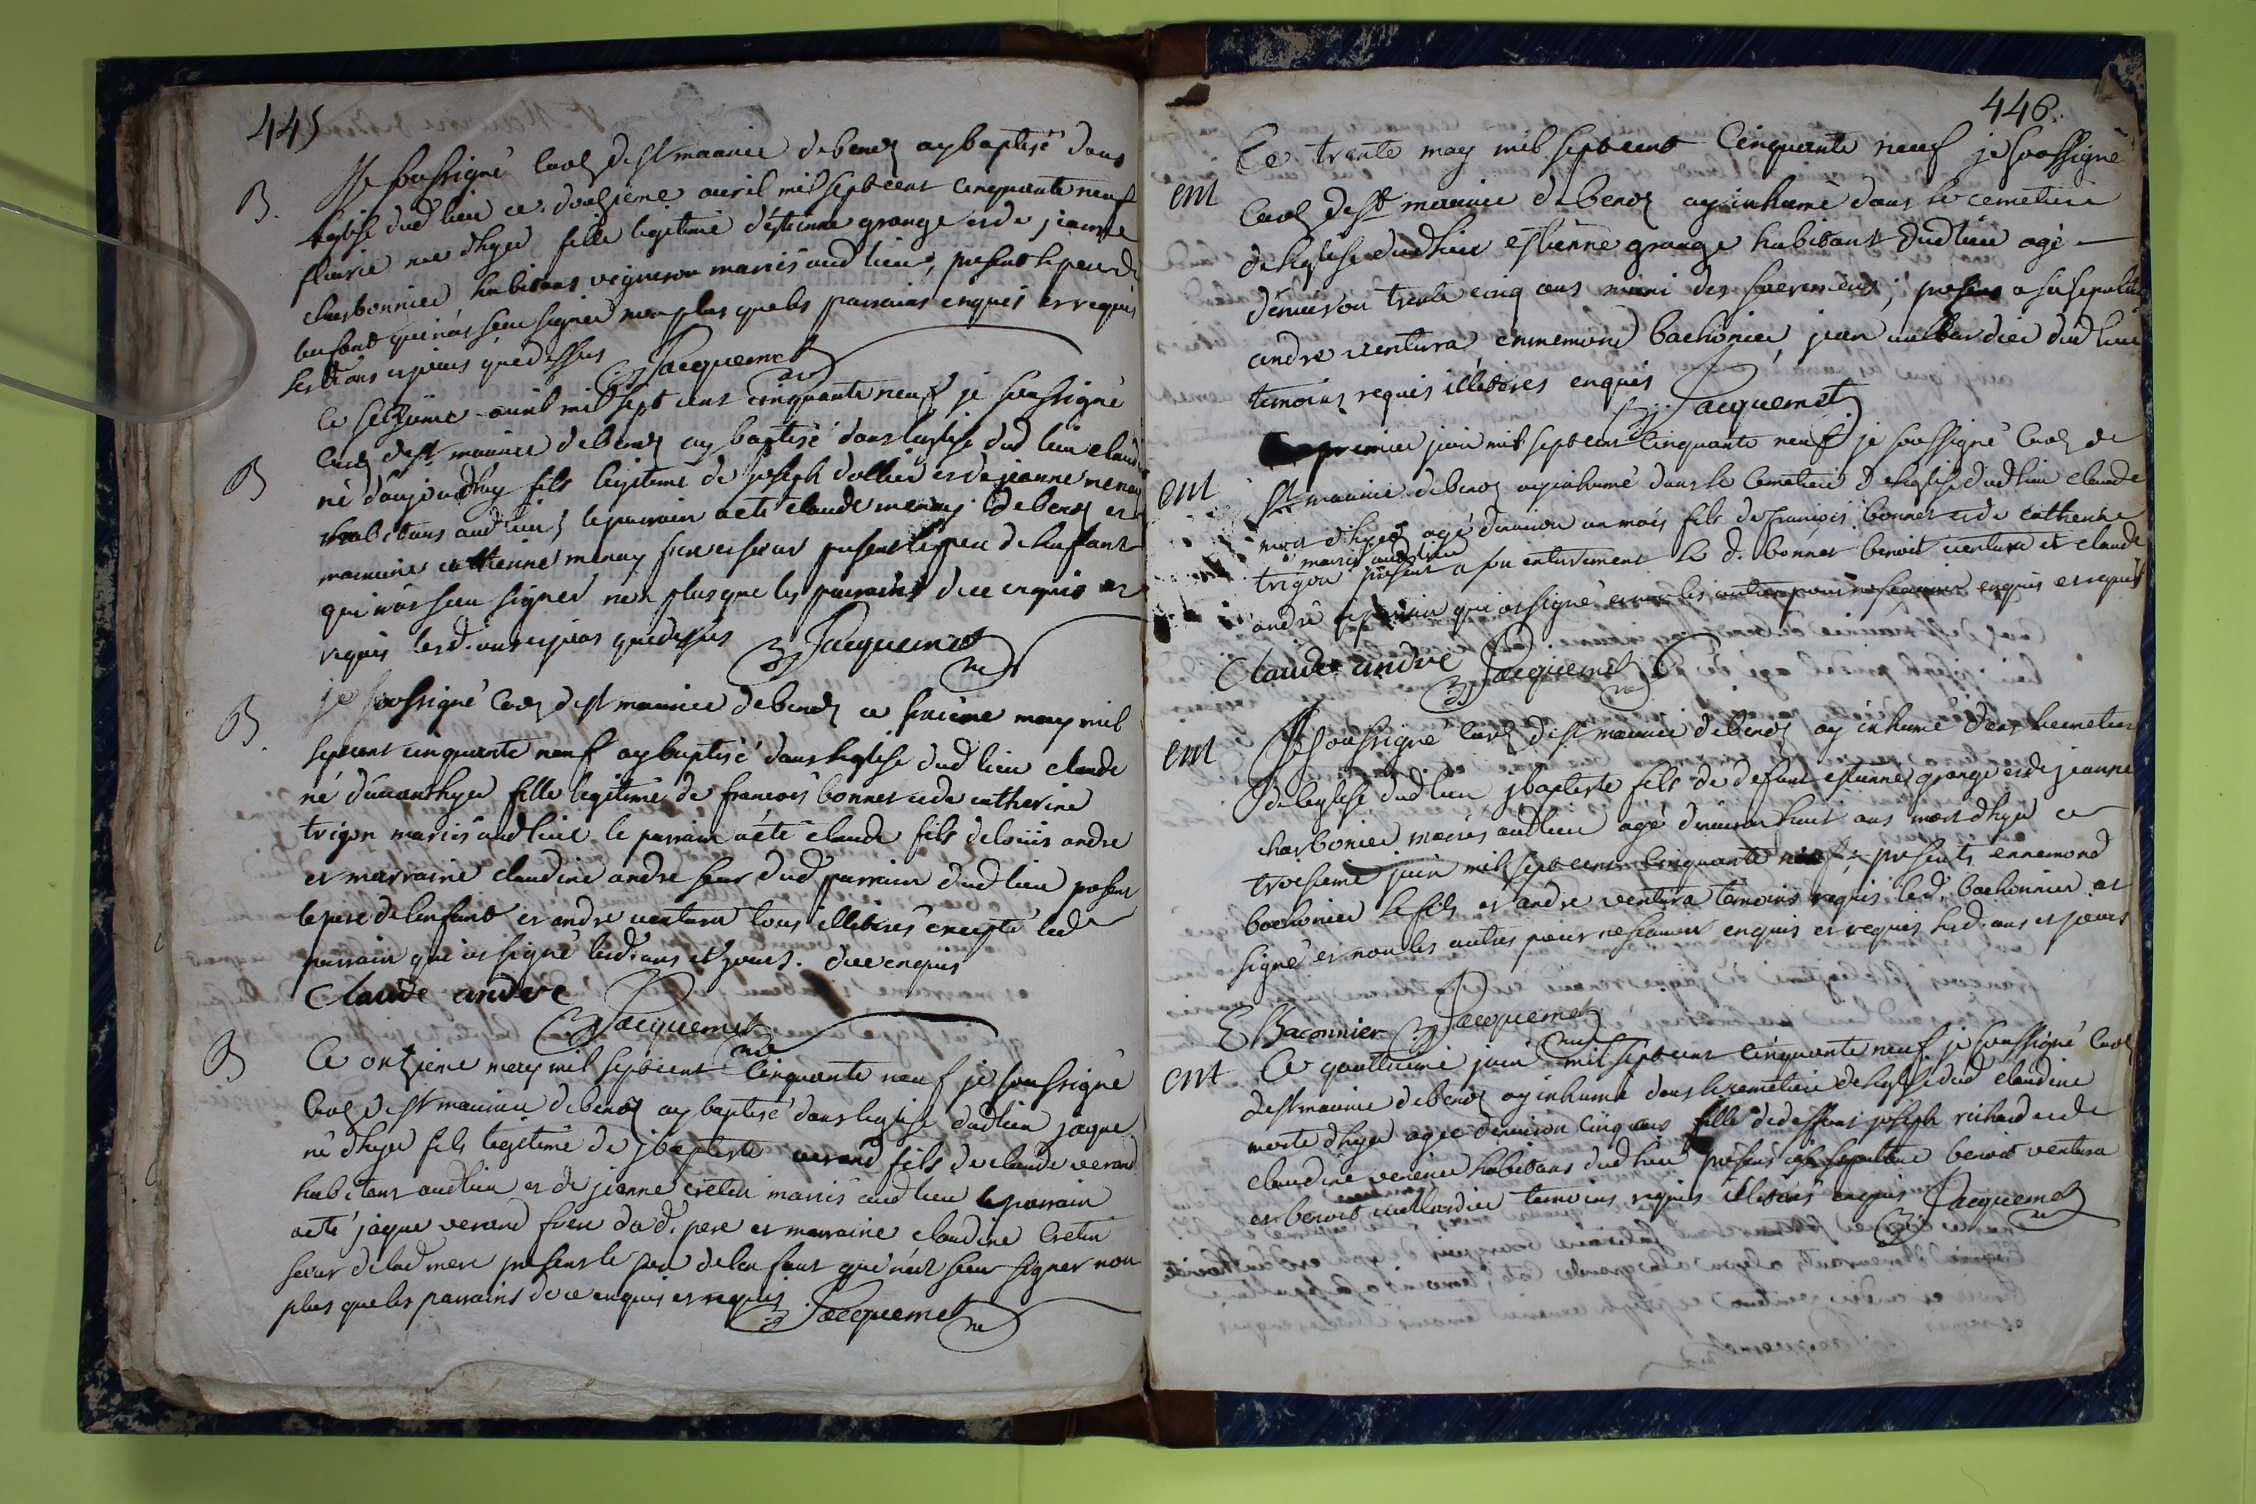 445
B.
Je soussigné Curé de St maurice de benos ay baptisé dans
l'eglise dud lieu ce douzieme avril mil sept cent cinquante neuf
fleurie née d'hyer fille legitime d'estienne grange et de jeanne
charbonnier habitans vigneron mariés aud lieu, present le pere de
l'enfant qui n'ont sçeu signer non plus que les parrains enquis et requis
lesd. ans et jours que dessus Jacquemet
B
Ce seizieme avril mil sept cent cinquante neuf je soussigné
Curé de St maurice de benos ay baptisé dans l'eglise dud lieu claude
né d'aujourdhuy fils legitime de joseph dollier et de jeanne menay
habitans aud lieu; le parrain a eté claude menay de benos et
marraine catherine menay present le pere de l'enfant
qui n'ont sceu signer non plus que les parrains de ce enquis et
requis lesd. ans et jours que dessus Jacquemet
B.
je soussigné Curé de St maurice de benos ce may mil
sept cent cinquante neuf ay baptisé dans l'eglise dud lieu claude
né d'avanthyer fille legitime de francois bonnet et de catherine
trigon mariés aud lieu le parrain a eté claude fils de loüis andre
et marraine claudine andre sœur dud parrain dud lieu present
le pere de l'enfant et andre ventura tous illiterés excepté led
parrain qui a signé lesd. ans et jours. de ce enquis
Claude andre Jacquemet
B
Ce onzieme may mil sept cent cinquante neuf je soussigné
Curé de St maurice de benos ay baptisé dans l'eglise dud lieu jaque
né d'hyer fils legitime de jbaptiste verand fils de claude verand
habitans aud lieu et de jeanne cretin mariés aud lieu le parrain
a eté jaque verand frere dud. pere et marraine claudine Cretin
sœur de lad mere present le pere de l'enfant qui n'ont sceu signer non
plus que les parrains de ce enquis et requis Jacquemet
446.
ent
Ce trente may mil sept cent Cinquante neuf je soussigné
Curé de St maurice de benos ay inhumé dans le cemetiere
de l'eglise dud lieu estienne grange habitant dud lieu agé
d'environ trente cinq ans muni des sacremens; presens a sa sepulture
andre ventura, ennemond bachonier, jean dud lieu
temoins requis illiteres enquis Jacquemet
ent
Ce premier juin mil sept cent Cinquante neuf je soussigné Curé de
St maurice de benos ay inhumé dans le Cemetiere de l'eglise dud lieu claude
mort d'hyer agé d'environ un mois fils de françois bonnet et de catherine
mariés aud lieu
trigon present a son enterrement le d. bonnet benoit ventura et claude
andré le parrain qui a signé et non les autres pour ne sçavoir enquis et requis
Claude andre Jacquemet
ent
Je soussigné Curé de St maurice de benos ay inhumé dans le cemetiere
de l'eglise dud lieu jbaptiste fils de defunt estienne grange et de jeanne
charbonier mariés aud lieu agé d'environ huit ans mort d'hyer ce
troisieme juin mil sept cent Cinquante neuf, presents ennemond
bachonier le fils et andre ventura temoins requis led. bachonnier a
signé et non les autres pour ne sçavoir enquis et requis lesd. ans et jours
E Baconnier Jacquemet
ent
Ce quattrieme juin mil sept cent cinquante neuf je soussigné Curé
de St maurice de benos ay inhumé dans le cemetiere de l'eglise dud claudine
morte d'hyer agée d'environ cinq ans fille de deffunt joseph richard et de
claudine habitans dud lieu presens a sa sepulture benoit ventura
et benoit temoins requis illiterés enquis Jacquemet